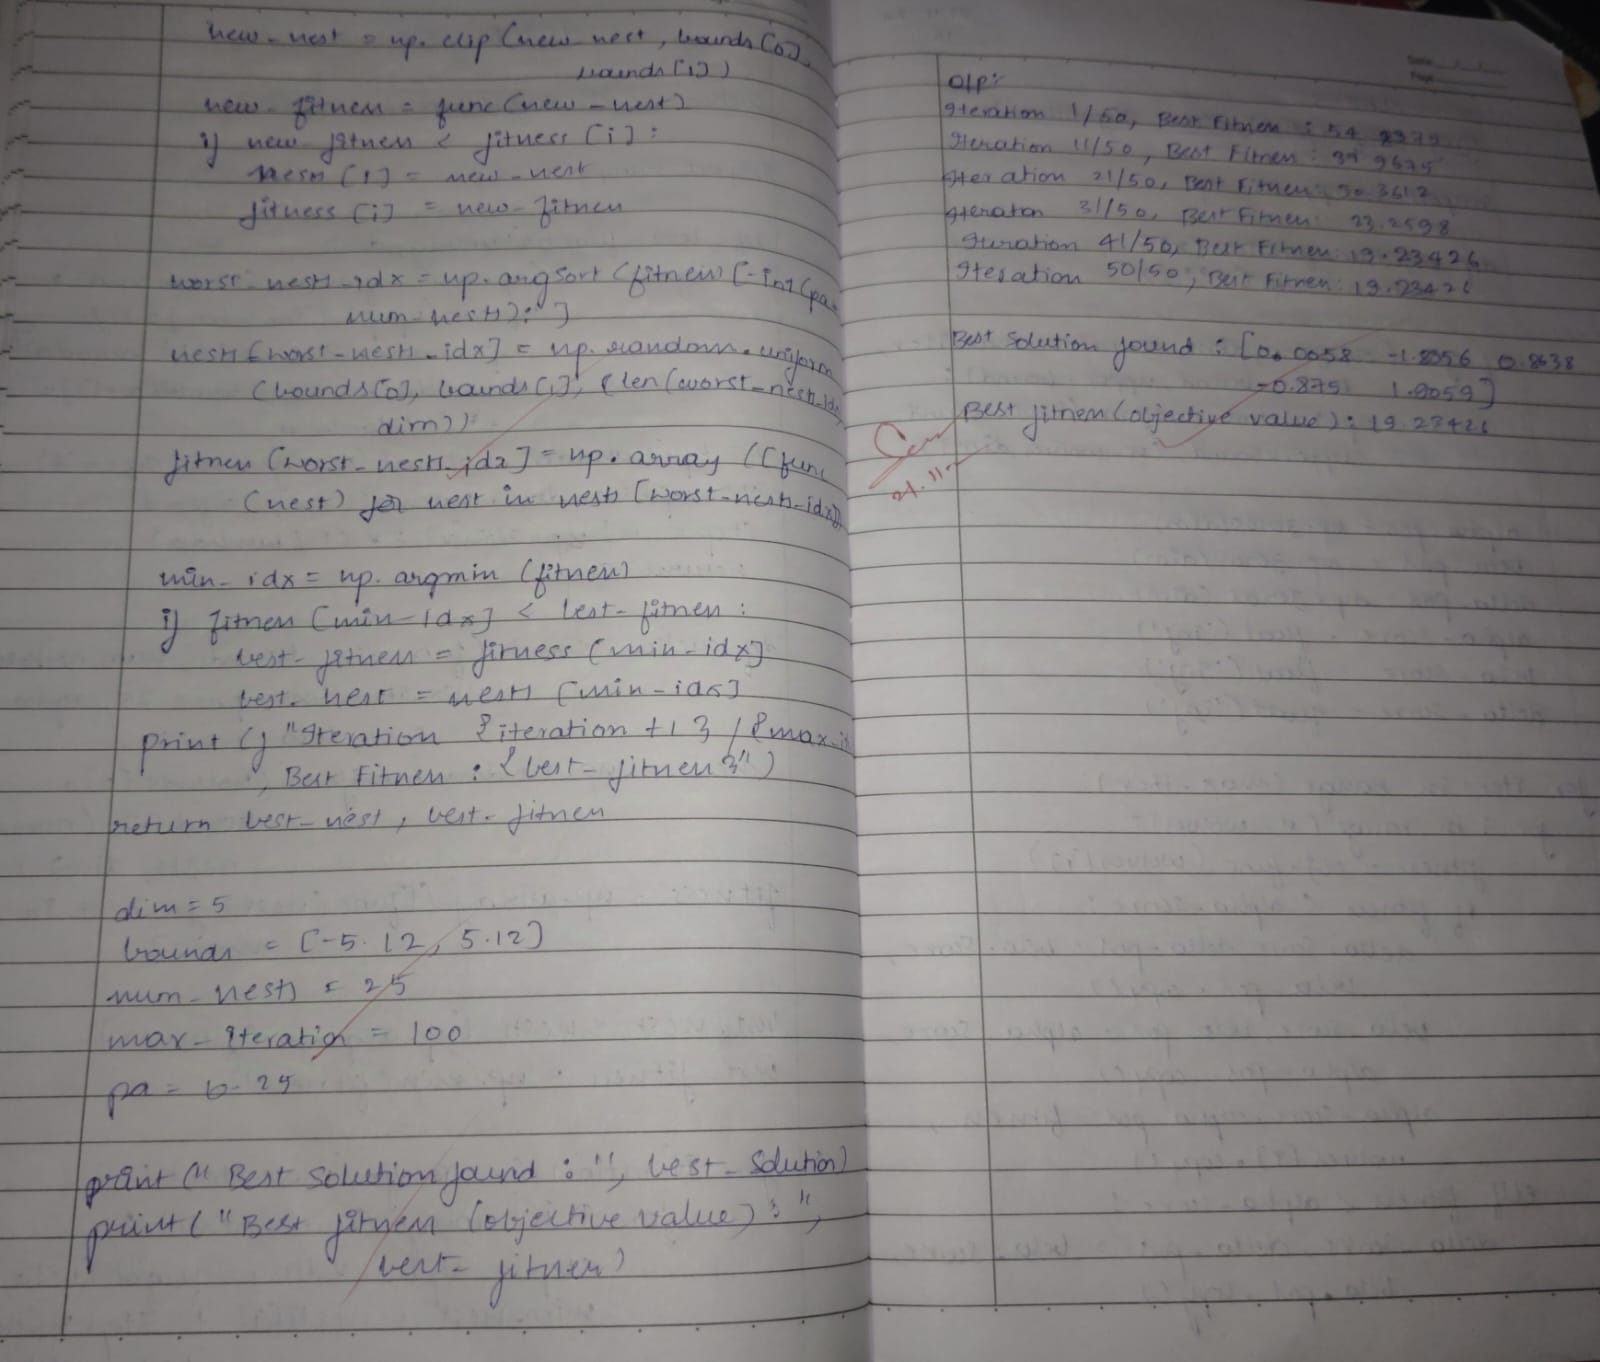 new-nest = np. clip (new-nest, bounds[0],
bounds[1])
new-fitness = func(new-nest)
if new-fitness < fitness[i]:
nests[i] = new-nest
fitness[i] = new-fitness
worst-nests-idx = np.argsort(fitness)[-int(pa*
num-nests):]
nests[worst-nests-idx] = np.random.uniform
(bounds[0], bounds[1], (len(worst-nests-idx
dim))
fitness[worst-nests-idx] = np.array([func
(nest) for nest in nests[worst-nests-idx]
min-idx = np.argmin(fitness)
if fitness[min-idx] < best-fitness:
best-fitness = fitness[min-idx]
best-nest = nests[min-idx]
print(f"Iteration {iteration+1}/{max-it
, Best Fitness: {best-fitness}")
return best-nest, best-fitness
dim = 5
bounds = [-5.12, 5.12]
num-nests = 25
max-iteration = 100
pa = 0.25
print("Best Solution found:", best-solution)
print("Best fitness (objective value):",
best-fitness)
O/P:
Iteration 1/50, Best Fitness: 54
Iteration 11/50, Best Fitness: 39 9675
Iteration 21/50, Best Fitness: 3612
Iteration 31/50, Best Fitness: 23.2598
Iteration 41/50, Best Fitness: 19.23426
Iteration 50/50, Best Fitness: 19.23426
Best Solution found: [0.0058 -1.8056 0.8638
-0.875 1.0059]
Best fitness (objective value): 19.23426